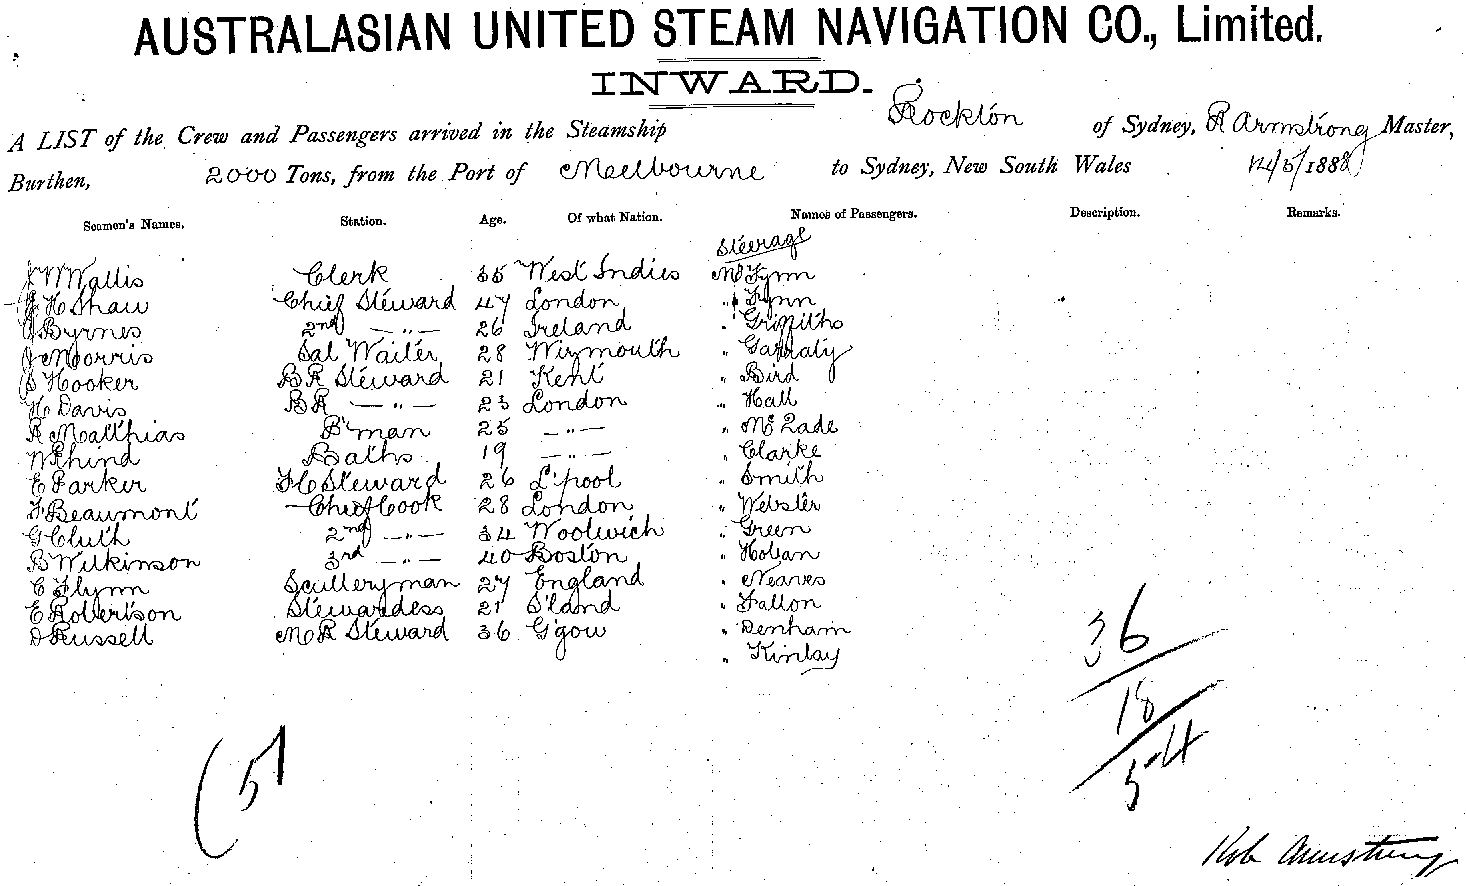 AUSTRALASIAN UNITED STEAM NAVIGATION CO., Limited.
INWARD.
A LIST of the Crew and Passengers arrived in the Steamship Rockton of Sydney, R Armstrong Master,
Burthen, 2000 Tons, from the Port of Melbourne to Sydney, New South Wales 14/5/1888
Seamen's Names. Station. Age. Of what Nation. Names of Passengers. Description. Remarks.
Steerage
J W Wallis Clerk 35 West Indies Mr Fynn
H Shaw Chief Steward 47 London " Fynn
J Byrnes 2nd — " — 26 Ireland " Griffiths
J Morris Sal Waiter 28 Wirmouth " Garraty
Hooker BR Steward 21 Kent " Bird
H Davis BR — " — 23 London " Hall
R Matthias B'man 25 — " — " McQade
W Rhind Baths 19 — " — " Clarke
E Parker F C Steward 26 L'pool " Smith
F Beaumont Chief Cook 28 London " Webster
G Cluth 2nd — " — 34 Woolwich " Green
B Wilkinson 3rd — " — 40 Boston " Hoban
C Flynn Scullery man 27 England " Neaves
E Robertson Stewardess 21 S'land " Fallon
D Russell M R Steward 36 G'gow " Denham
" Kinlay
36
18
54
(51
Rob Armstrong